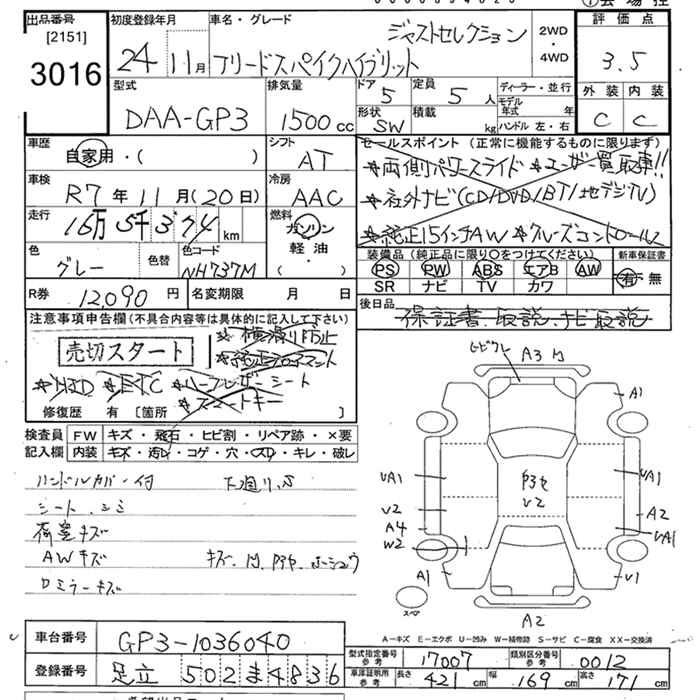 出品番号 [2151] 3016
初度登録年月 24年11月
車名・グレード ジャストセレクション
フリードスパイクハイブリット
2WD・4WD
評価点 3.5
外装 C 内装 C
型式 DAA-GP3
排気量 1500cc
ドア 5 定員 5人
形状 SW 積載 kg
ディーラー・並行
モデル年式 年
ハンドル 左・右
車歴 自家用・( )
シフト AT
セールスポイント (正常に機能するものに限ります)
★両側パワースライド ★ユーザー買取車!!
★社外ナビ(CD/DVD/BT/地デジTV)
★純正15インチAW ★クルーズコントロール
車検 R7年11月(20日)
冷房 AAC
走行 16万5千3百74km
燃料 ガソリン 軽油・( )
色 グレー 色替
色コード NH737M
装備品 (純正品に限り○をつけてください) 新車保証書
PS PW ABS エアB AW 有・無
SR ナビ TV カワ
R券 12,090円 名変期限 月 日
後日品 保証書、取説、ナビ取説
注意事項申告欄(不具合内容等は具体的に記入して下さい)
売切スタート
★横滑り防止
★HID ★ETC ★ハーフレザーシート
★スマートキー
修復歴 有 [箇所 ]
検査員記入欄
FW キズ・飛石・ヒビ割・リペア跡・×要
内装 キズ・汚れ・コゲ・穴・スレ・キレ・破レ
ハンドルカバー付 下廻りS
シート、シミ
荷室キズ
AWキズ
ロミラーキズ
A3
A1
UA1 UA1
V2 A2
A4 UA1
W2
A1 V1
A2
V2
スペア
A−キズ E−エクボ U−凹み W−補修跡 S−サビ C−腐食 XX−交換済
車台番号 GP3-1036040
登録番号 足立 502 ま 4836
型式指定番号 参考 17007 類別区分番号 参考 0012
車庫証明用 参考 長さ 421cm 幅 169cm 高さ 171cm